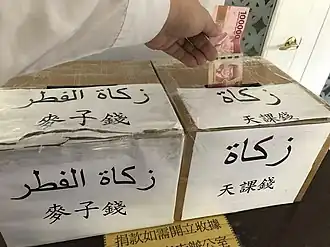 100000
زكاة الفطر
麥子錢
زكاة
天課錢
زكاة الفطر
麥子錢
زكاة
天課錢
捐款如需開立收據